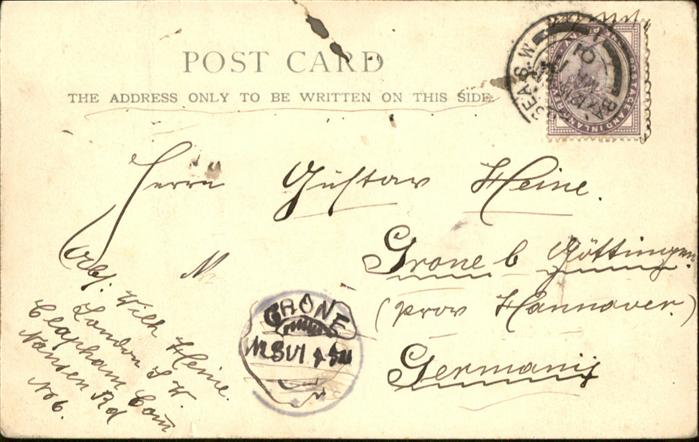 POST CARD
THE ADDRESS ONLY TO BE WRITTEN ON THIS SIDE
POSTAGE AND INLAND
01
Herrn Gustav Heine.
Grone b Göttingen.
(prov Hannover.)
Germany
GRONE
Abs: Wilh Heine.
London S W.
Clapham Com
Nansen Rd
No 6.